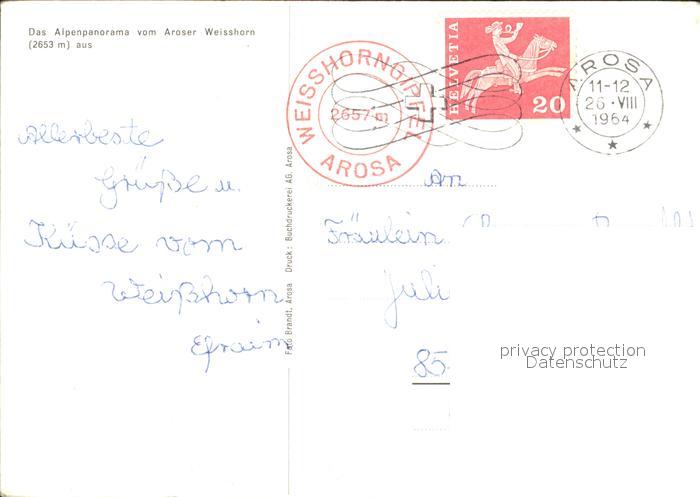 Das Alpenpanorama vom Aroser Weisshorn
(2653 m) aus
Allerbeste
Grüße u.
Küsse vom
Weißhorn
Efraim
Foto Brandt, Arosa Druck: Buchdruckerei AG. Arosa
WEISSHORNGIPFEL
2657 m
AROSA
HELVETIA
20
AROSA
11-12
26·VIII
1964
An
Fräulein
Juli
85
privacy protection
Datenschutz